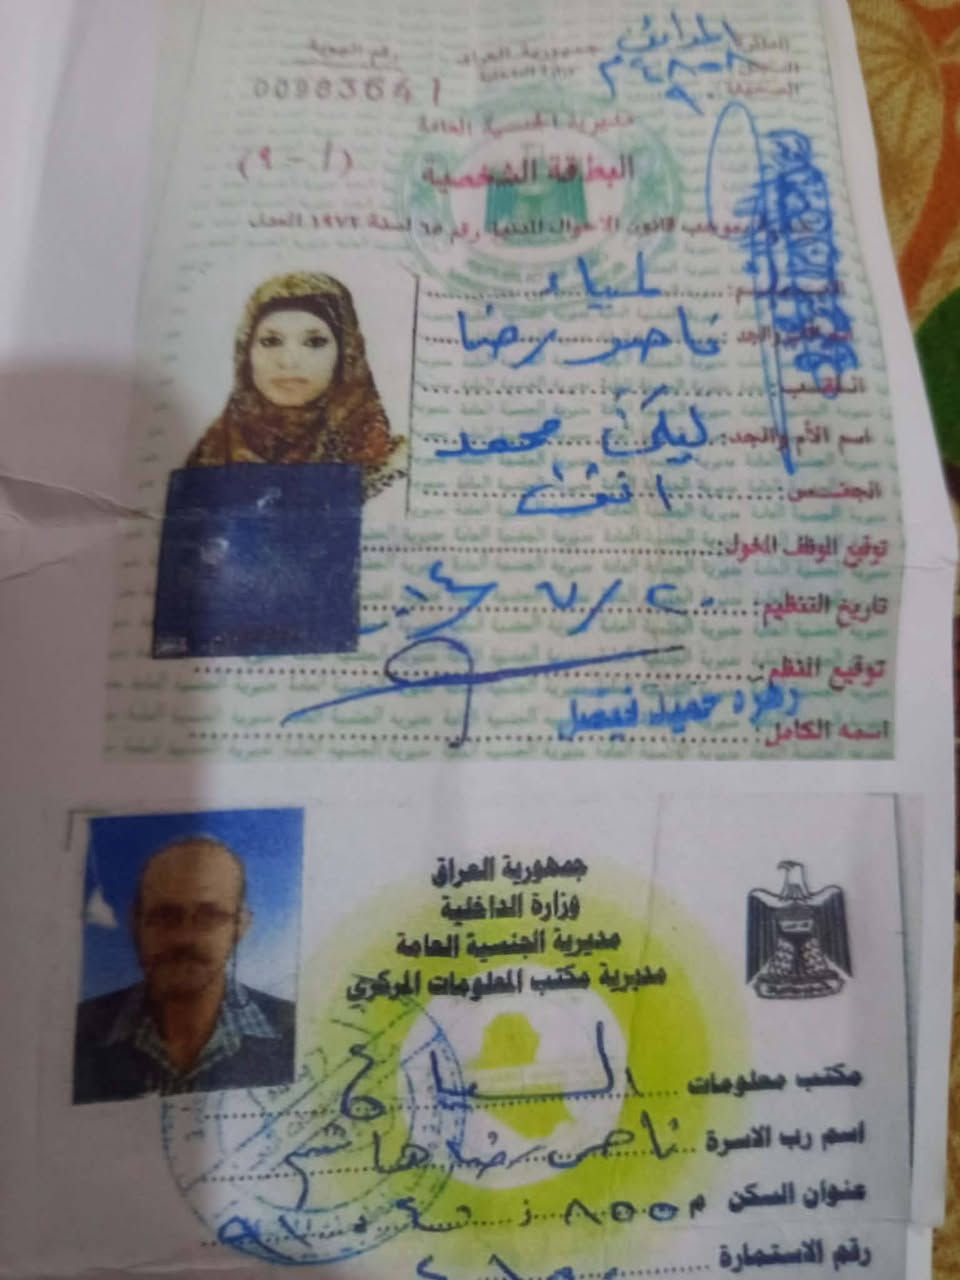 جمهورية العراق
وزارة الداخلية
رقم الهوية
00983641
الدائرة: المدائن
السجل:
الصحيفة:
مديرية الجنسية العامة
البطاقة الشخصية
(أ - ٩)
بموجب قانون الاحوال المدنية رقم ٦٥ لسنة ١٩٧٢ المعدل
لمياء
ناصر رضا
اللقب:
اسم الأم والجد: ليلى محمد
الجنس: انثى
توقيع الموظف المخول:
تاريخ التنظيم:
توقيع المنظم:
اسمه الكامل: زهره حميد فيصل
جمهورية العراق
وزارة الداخلية
مديرية الجنسية العامة
مديرية مكتب المعلومات المركزي
مكتب معلومات
اسم رب الاسرة ناصر رضا هاشم
عنوان السكن م ٨٥٥ ز
رقم الاستمارة